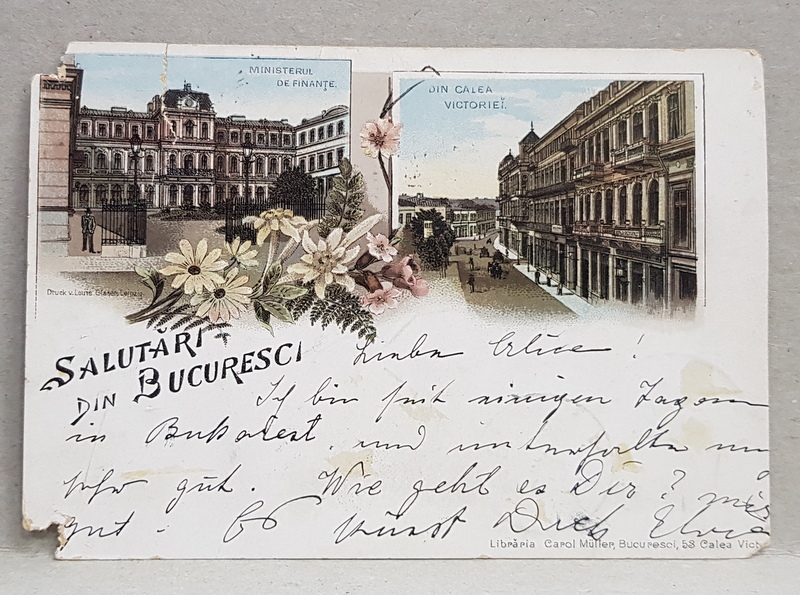 MINISTERUL
DE FINANȚE.
DIN CALEA
VICTORIEĬ.
Druck v. Louis Glaser, Leipzig
SALUTĂRI
DIN BUCURESCI
Liebe Alice!
Ich bin seit einigen Tagen
in Bukarest, und unterhalte
sehr gut. Wie geht es Dir? mir
gut. Es küsst Dich
Librăria Carol Müller, Bucuresci, 53 Calea Vict